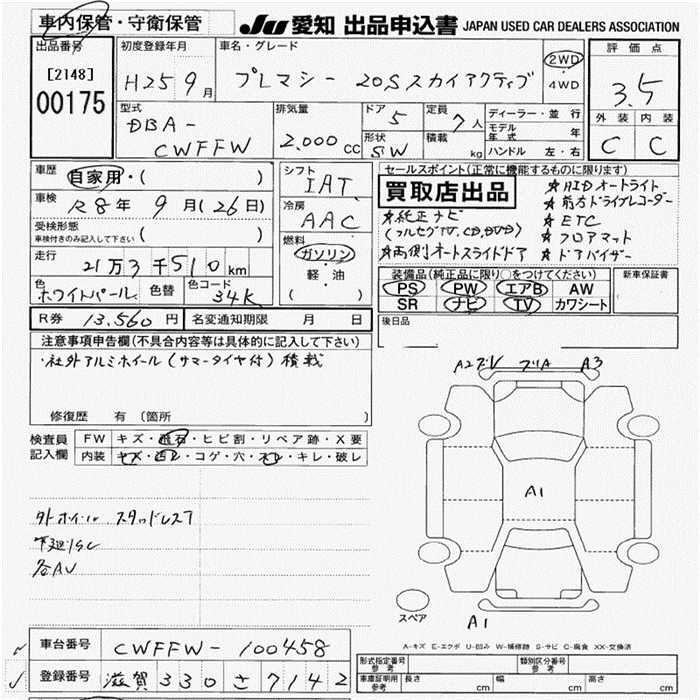 車内保管・守衛保管
JU 愛知 出品申込書 JAPAN USED CAR DEALERS ASSOCIATION
出品番号 [2148] 00175
初度登録年月 H25 9月
車名・グレード プレマシー 20S スカイアクティブ
2WD ・ 4WD
評価点 3.5
外装 内装
C C
型式 DBA- CWFFW
排気量 2.000 cc
ドア 5 定員 7人
形状 SW 積載 kg
ディーラー・並行
モデル年式 年
ハンドル 左・右
車歴 自家用・( )
車検 R8年 9月(26日)
受検形態 車検付きのみ記入して下さい ( )
走行 21万3千510km
色 ホワイトパール 色替 色コード 34K
シフト IAT
冷房 AAC
燃料 ガソリン
軽・油
( )
セールスポイント(正常に機能するものに限ります)
買取店出品
★純正ナビ
(フルセグTV,CD,DVD)
★両側オートスライドドア
★HIDオートライト
★前方ドライブレコーダー
★ETC
★フロアマット
★ドアバイザー
装備品(純正品に限り○をつけてください)
PS PW エアB AW
SR ナビ TV カワシート
新車保証書
R券 13.560円 名変通知期限 月 日
後日品
注意事項申告欄(不具合内容等は具体的に記入して下さい)
・社外アルミホイール(サマータイヤ付)積載
修復歴 有 (箇所 )
検査員記入欄
FW キズ・飛石・ヒビ割・リペア跡・X要
内装 キズ・汚レ・コゲ・穴・スレ・キレ・破レ
外ホイール スタッドレス7
下廻りSC
各AU
A2 ブV フリA A3
A1
スペア
A1
A-キズ E-エクボ U-凹み W-補修跡 S-サビ C-腐食 XX-交換済
車台番号 CWFFW-100458
登録番号 滋賀 330 さ 7142
型式指定番号 参考 類別区分番号 参考
車庫証明用 参考 長さ cm 幅 cm 高さ cm